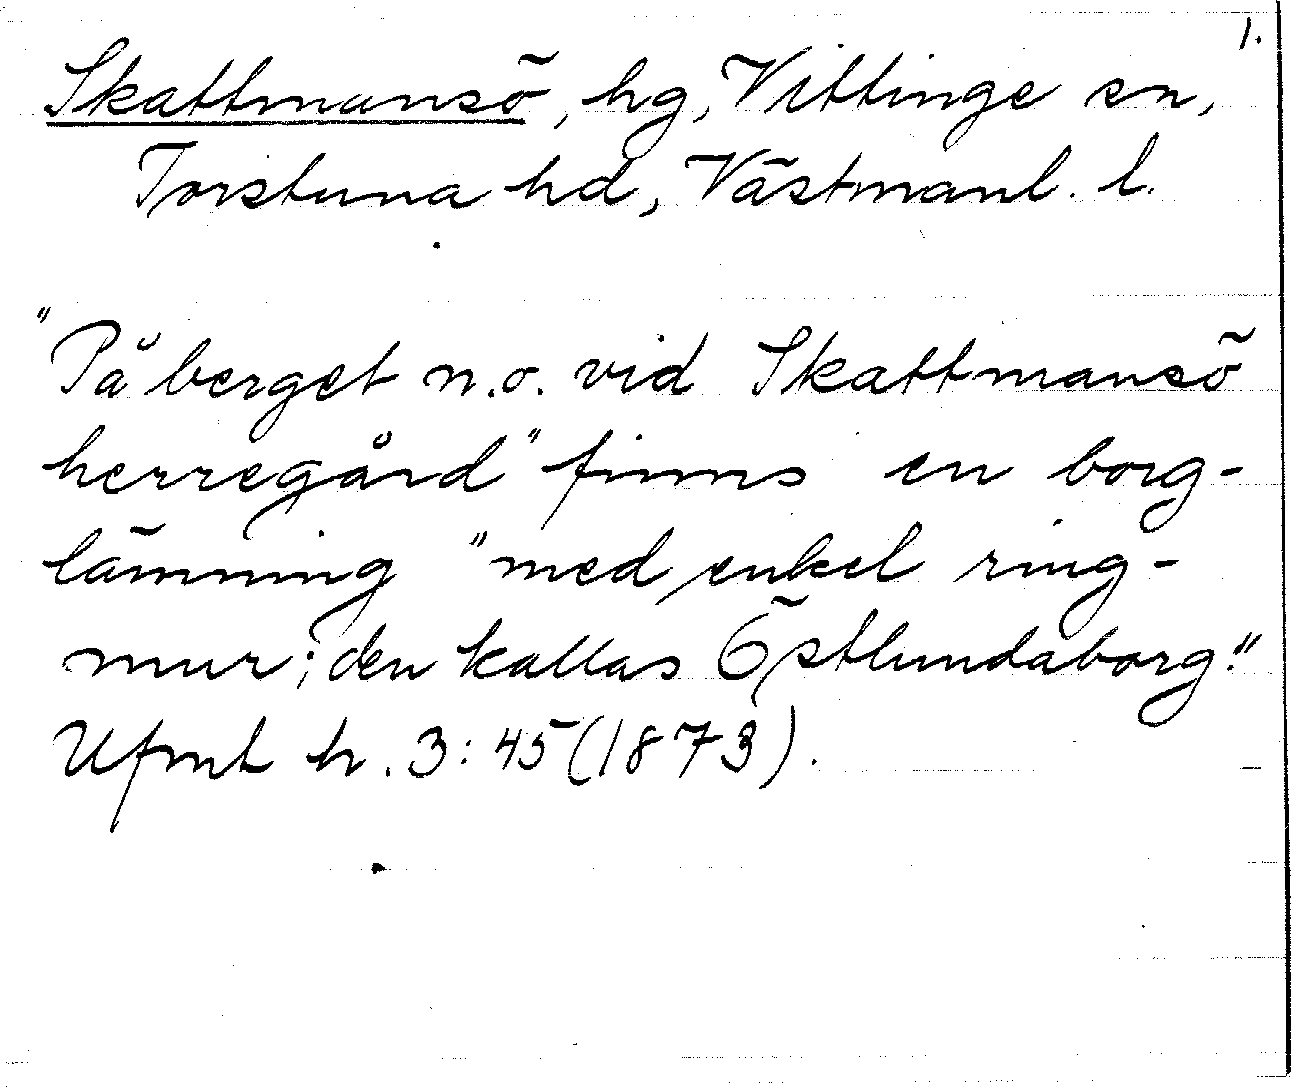 1.
Skattmansö, hg, Vittinge sn,
Torstuna hd, Västmanl. l.
"På berget n.o. vid Skattmansö
herregård" finns en borg-
lämning "med enkel ring-
mur; den kallas Östlundaborg."
Ufmt h. 3:45 (1873).